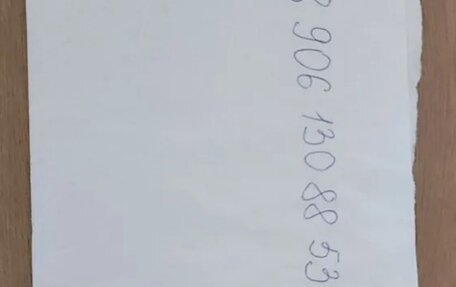 8 906 130 88 53